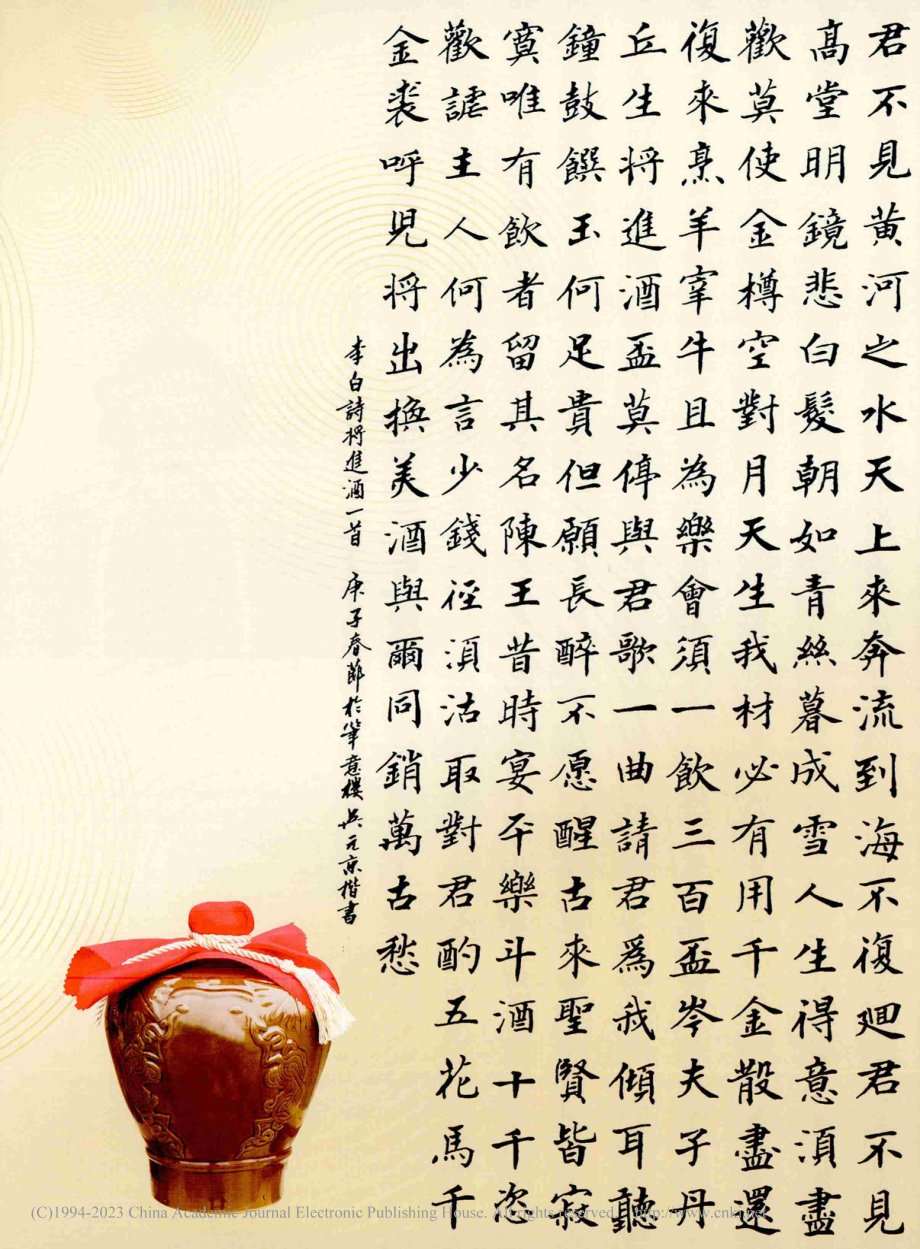 君不見黃河之水天上來奔流到海不復迴君不見
高堂明鏡悲白髮朝如青絲暮成雪人生得意須盡
歡莫使金樽空對月天生我材必有用千金散盡還
復來烹羊宰牛且為樂會須一飲三百盃岑夫子丹
丘生將進酒盃莫停與君歌一曲請君為我傾耳聽
鐘鼓饌玉何足貴但願長醉不愿醒古來聖賢皆寂
寞唯有飲者留其名陳王昔時宴平樂斗酒十千恣
歡謔主人何為言少錢徑須沽取對君酌五花馬千
金裘呼兒將出換美酒與爾同銷萬古愁
李白詩將進酒一首 庚子春節於筆意樓吳元京楷書
(C)1994-2023 China Academic Journal Electronic Publishing House. All rights reserved. http://www.cnki.net